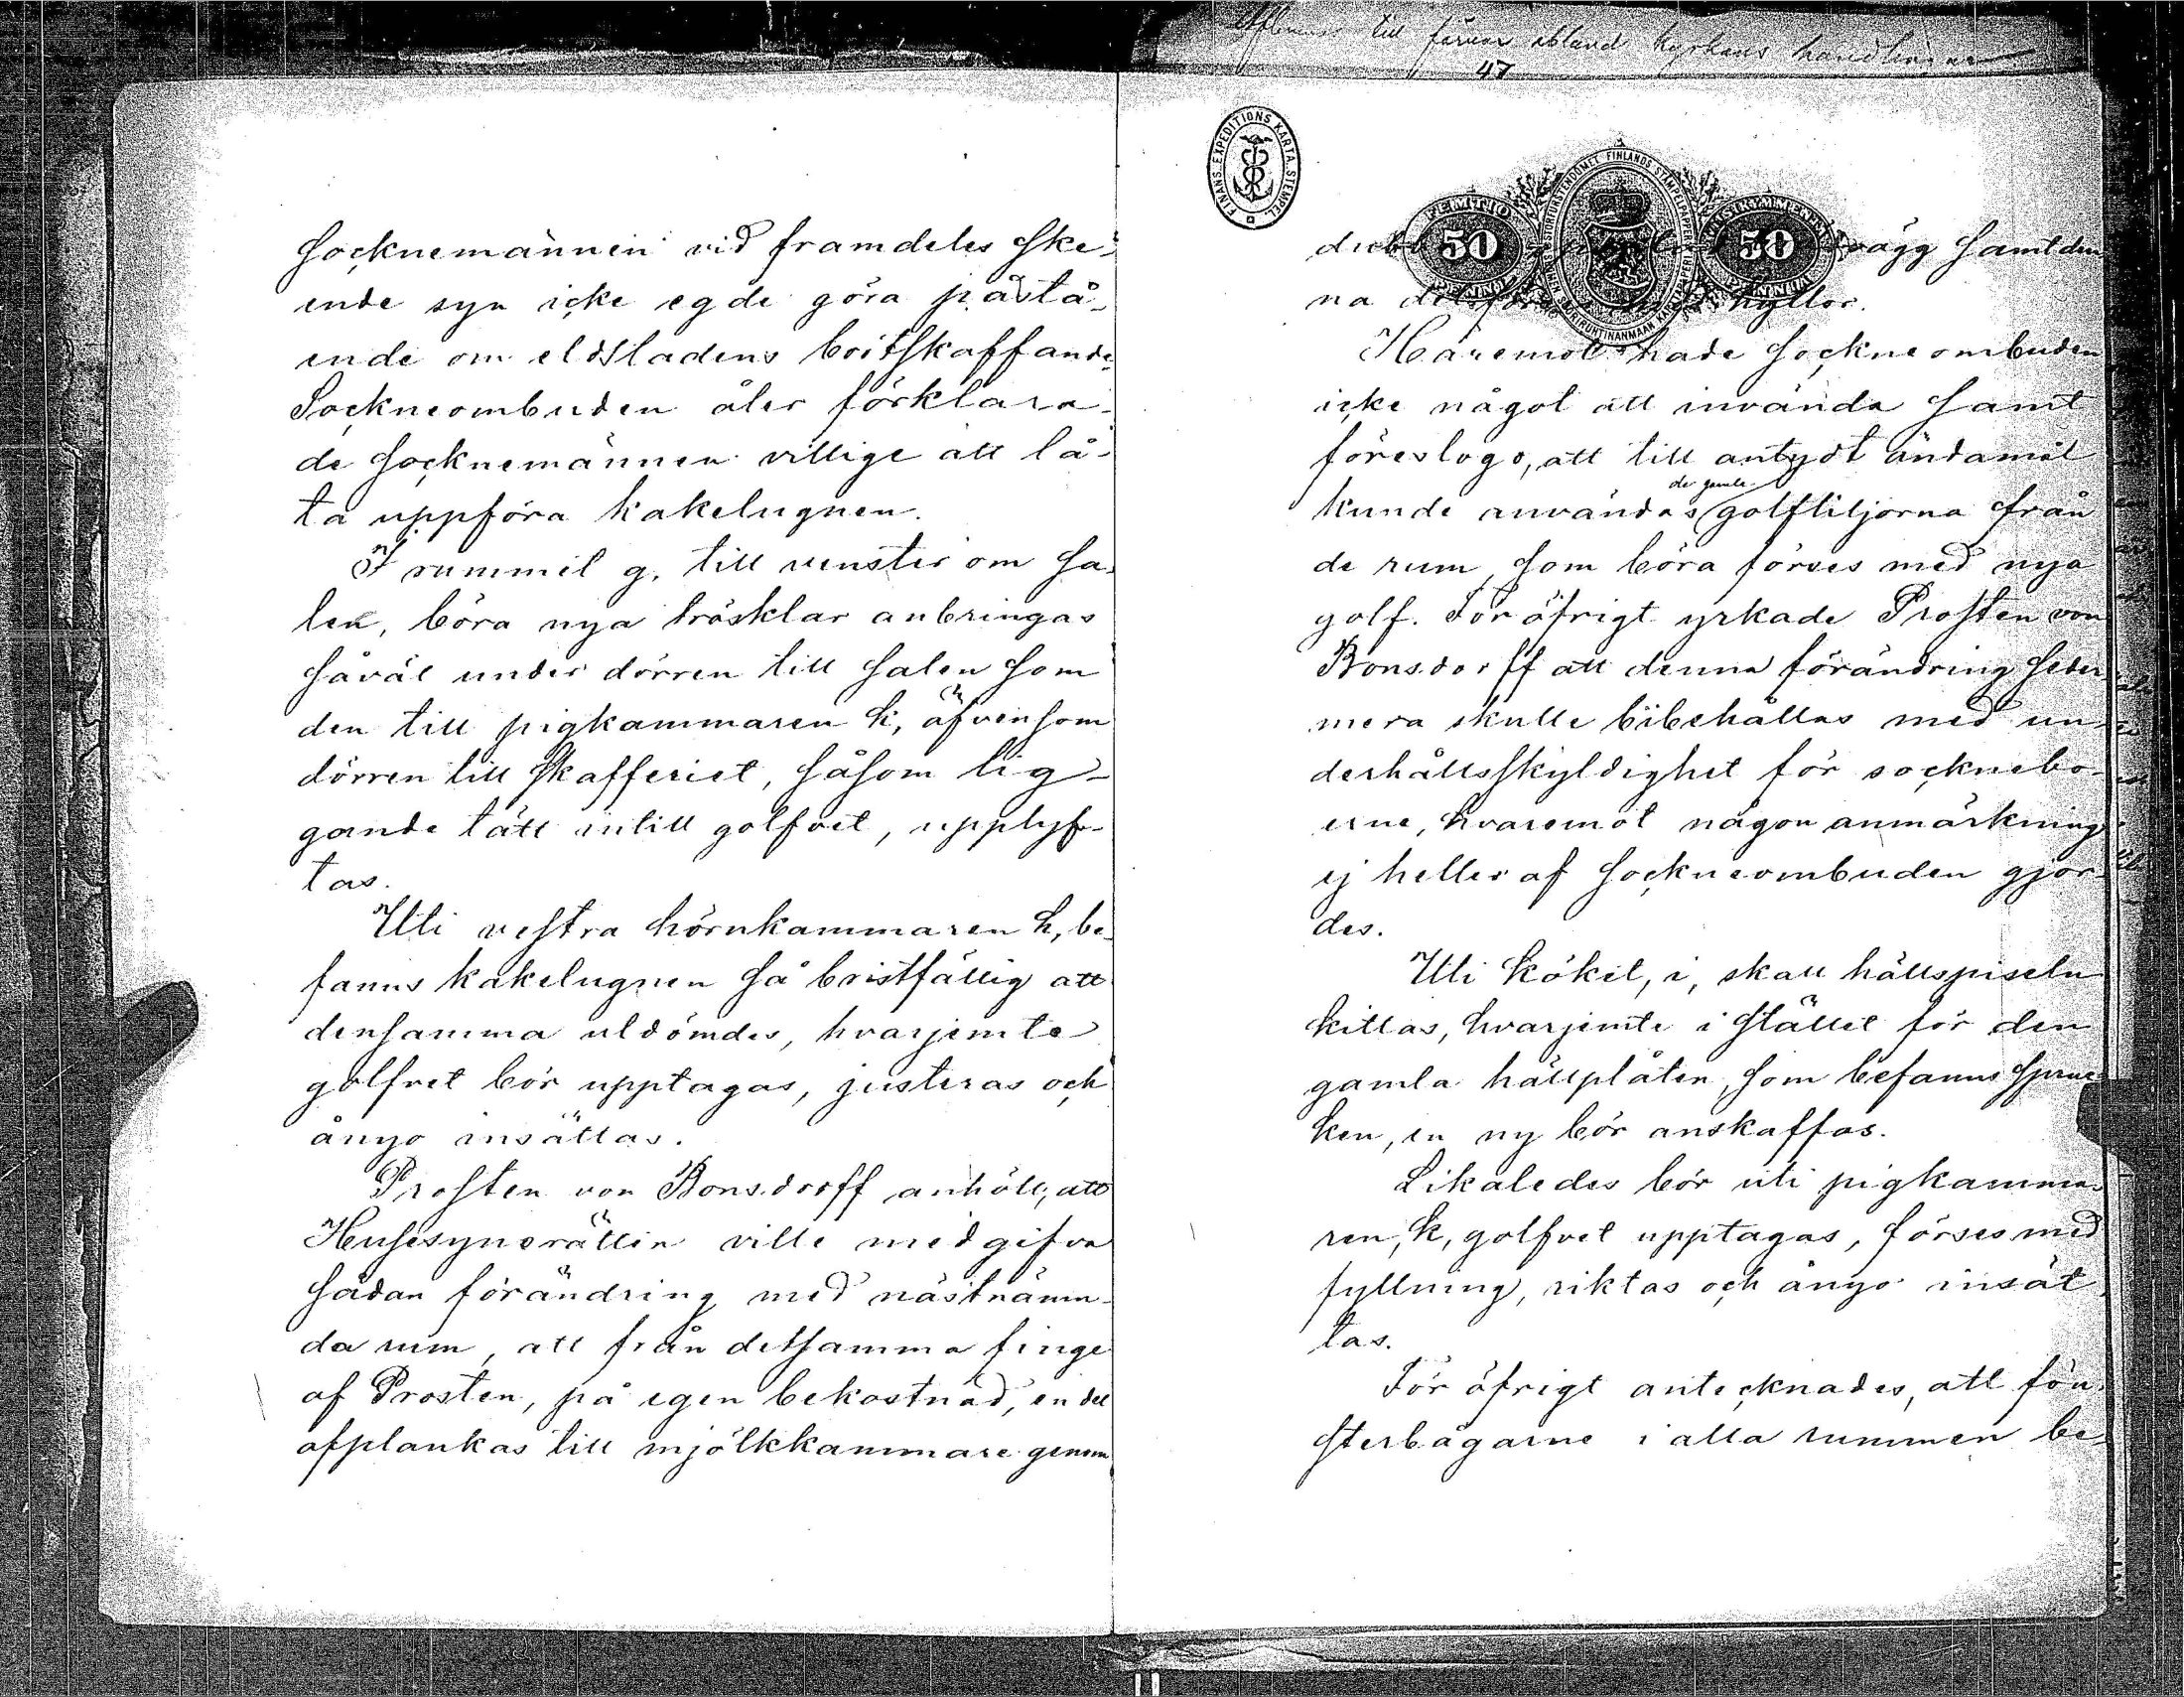 Socknemännen vid framdeles ske-
ende syn icke egde göra påstå-
ende om eldstadens bortskaffande,
Sockneombuden åter förklara-
de Socknemännen villige att lå-
ta uppföra kakelugnen.
I rummet g, till venster om sa-
len, böra nya trösklar anbringas
såväl under dörren till salen som
den till pigkammaren k, äfvensom
dörren till skafferiet, såsom lig-
gande tätt intill golfvet, upplyf-
tas.
Uti vestra hörnkammaren h, be-
fanns kakelugnen så bristfällig att
densamma utdömdes, hvarjemte
golfvet bör upptagas, justeras och
ånyo insättas.
Prosten von Bonsdorff anhöll, att
Husesynsrätten ville medgifva
sådan förändring med nästnämn-
da rum, att från detsamma finge
af Prosten, på egen bekostnad, en del
afplankas till mjölkkammare genom
till förvar ibland kyrkans handlingar
47
FINANS EXPEDITIONS KARTA STEMPEL
FEMTIO 50 PENNI
50
vägg samt den
na hyllor.
Häremot hade sockneombuden
icke något att invända samt
föreslogo, att till antydt ändamål
de gamla
kunde användas golftiljorna från
de rum, som böra förses med nya
golf. För öfrigt yrkade Prosten von
Bonsdorff att denna förändring seder-
mera skulle bibehållas med un-
derhållsskyldighet för sockneбo-
erne, hvaremot någon anmärkning
ej heller af sockneombuden gjor-
des.
Uti köket, i, skall hällspiseln
kittas, hvarjemte i stället för den
gamla hällplåten, som befanns spruc-
ken, en ny bör anskaffas.
Likaledes bör uti pigkamma-
ren, k, golfvet upptagas, förses med
fyllning, riktas och ånyo insät-
tas.
För öfrigt antecknades, att fön-
sterbågarne i alla rummen be-